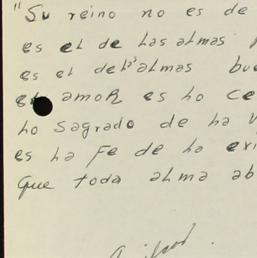 "Su reino no es de
es el de las almas
es el de las almas bue
el amor es lo ce
lo sagrado de la v
es la Fe de la exi
que toda alma ab